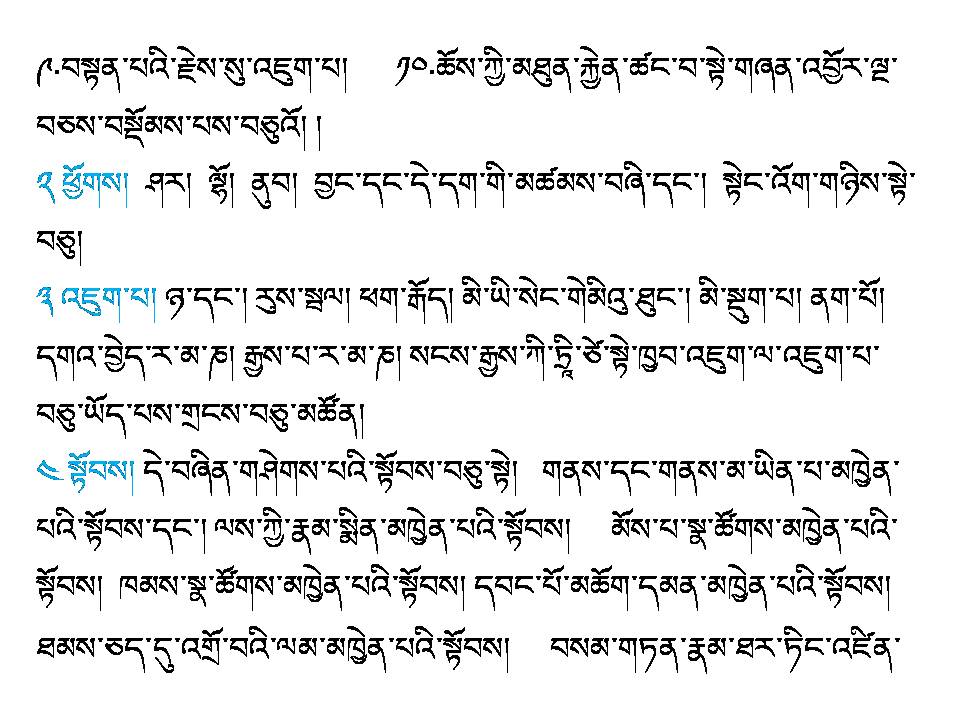 ༩.བསྟན་པའི་རྗེས་སུ་འཇུག་པ། ༡༠.ཆོས་ཀྱི་མཐུན་རྐྱེན་ཚང་བ་སྟེ་གཞན་འབྱོར་ལྔ་
བཅས་བསྡོམས་པས་བཅུའོ། །
༢ ཕྱོགས། ཤར། ལྷོ། ནུབ། བྱང་དང་དེ་དག་གི་མཚམས་བཞི་དང་། སྟེང་འོག་གཉིས་སྟེ་
བཅུ།
༣ འཇུག་པ། ཉ་དང་། རུས་སྦལ། ཕག་རྒོད། མི་ཡི་སེང་གེམིའུ་ཐུང་། མི་སྡུག་པ། ནག་པོ།
དགའ་བྱེད་ར་མ་ཎ། རྒྱས་པ་ར་མ་ཎ། སངས་རྒྱས་ཀི་ཏྲཱི་ཙེ་སྟེ་ཁྱབ་འཇུག་ལ་འཇུག་པ་
བཅུ་ཡོད་པས་གྲངས་བཅུ་མཚོན།
༤ སྟོབས། དེ་བཞིན་གཤེགས་པའི་སྟོབས་བཅུ་སྟེ། གནས་དང་གནས་མ་ཡིན་པ་མཁྱེན་
པའི་སྟོབས་དང་། ལས་ཀྱི་རྣམ་སྨིན་མཁྱེན་པའི་སྟོབས། མོས་པ་སྣ་ཚོགས་མཁྱེན་པའི་
སྟོབས། ཁམས་སྣ་ཚོགས་མཁྱེན་པའི་སྟོབས། དབང་པོ་མཆོག་དམན་མཁྱེན་པའི་སྟོབས།
ཐམས་ཅད་དུ་འགྲོ་བའི་ལམ་མཁྱེན་པའི་སྟོབས། བསམ་གཏན་རྣམ་ཐར་ཏིང་འཛིན་